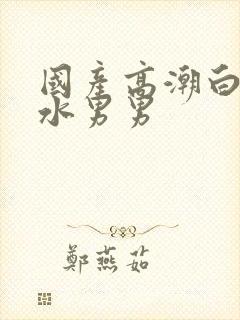 國產高潮白
水男男
鄭燕茹